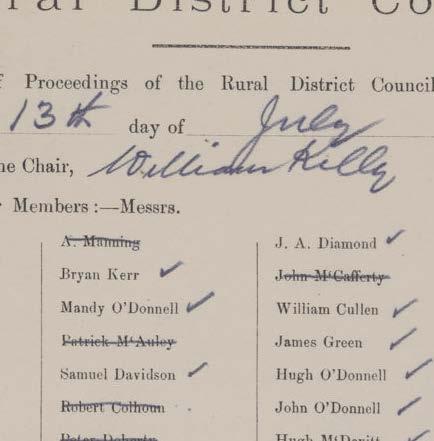 ral District Co
f Proceedings of the Rural District Council
13th day of July
he Chair, William Kelly
Members :—Messrs.
A. Manning
Bryan Kerr
Mandy O'Donnell
Patrick M'Auley
Samuel Davidson
Robert Colhoun
Peter Doherty
J. A. Diamond
John M'Cafferty
William Cullen
James Green
Hugh O'Donnell
John O'Donnell
Hugh McDevitt